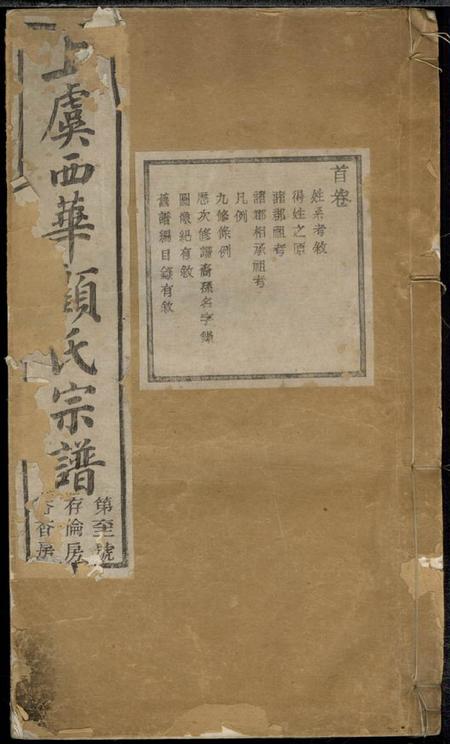 首卷
姓系考敘
得姓之原
諸郡祖考
諸郡相承祖考
凡例
九修條例
歷次修譜裔孫名字錄
圖像紀有敘
舊譜編目錄有敘
上虞西華顧氏宗譜
第號
存倫房
房